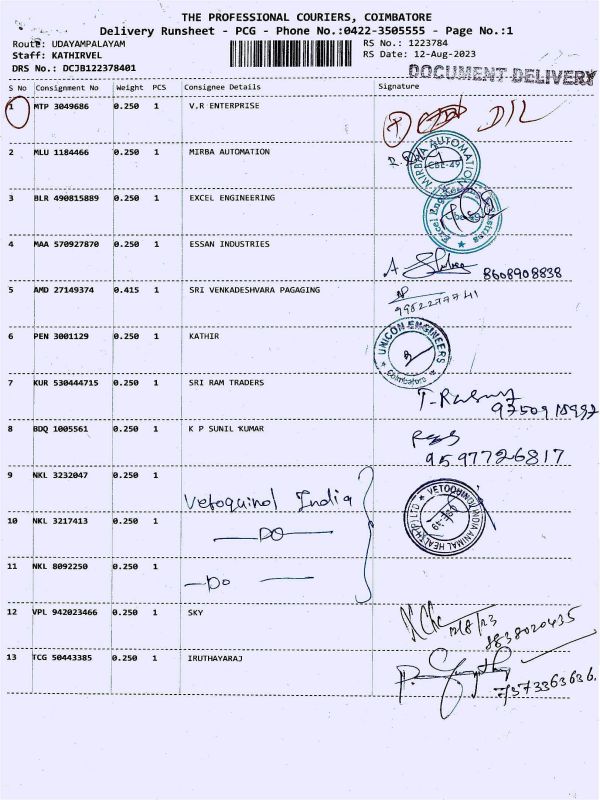 THE PROFESSIONAL COURIERS, COIMBATORE
Delivery Runsheet - PCG - Phone No.:0422-3505555 - Page No.:1
Route: UDAYAMPALAYAM RS No.: 1223784
Staff: KATHIRVEL RS Date: 12-Aug-2023
DRS No.: DCJB122378401
DOCUMENT DELIVERY
S No Consignment No Weight PCS Consignee Details Signature
1 MTP 3049686 0.250 1 V.R ENTERPRISE
D/L
2 MLU 1184466 0.250 1 MIRBA AUTOMATION
MIRBRA AUTOMATION
CBE-49
3 BLR 490815889 0.250 1 EXCEL ENGINEERING
4 MAA 570927870 0.250 1 ESSAN INDUSTRIES
8608908838
5 AMD 27149374 0.415 1 SRI VENKADESHVARA PAGAGING
6 PEN 3001129 0.250 1 KATHIR
UNICON ENGINEERS
Coimbatore
7 KUR 530444715 0.250 1 SRI RAM TRADERS
8 BDQ 1005561 0.250 1 K P SUNIL KUMAR
9597726817
9 NKL 3232047 0.250 1
Vetoquinol India
VETOQUINOL INDIA ANIMAL HEALTH (P) LTD
10 NKL 3217413 0.250 1
-DO-
11 NKL 8092250 0.250 1
-Do-
12 VPL 942023466 0.250 1 SKY
12/8/23
8838020435
13 TCG 50443385 0.250 1 IRUTHAYARAJ
7373363636.